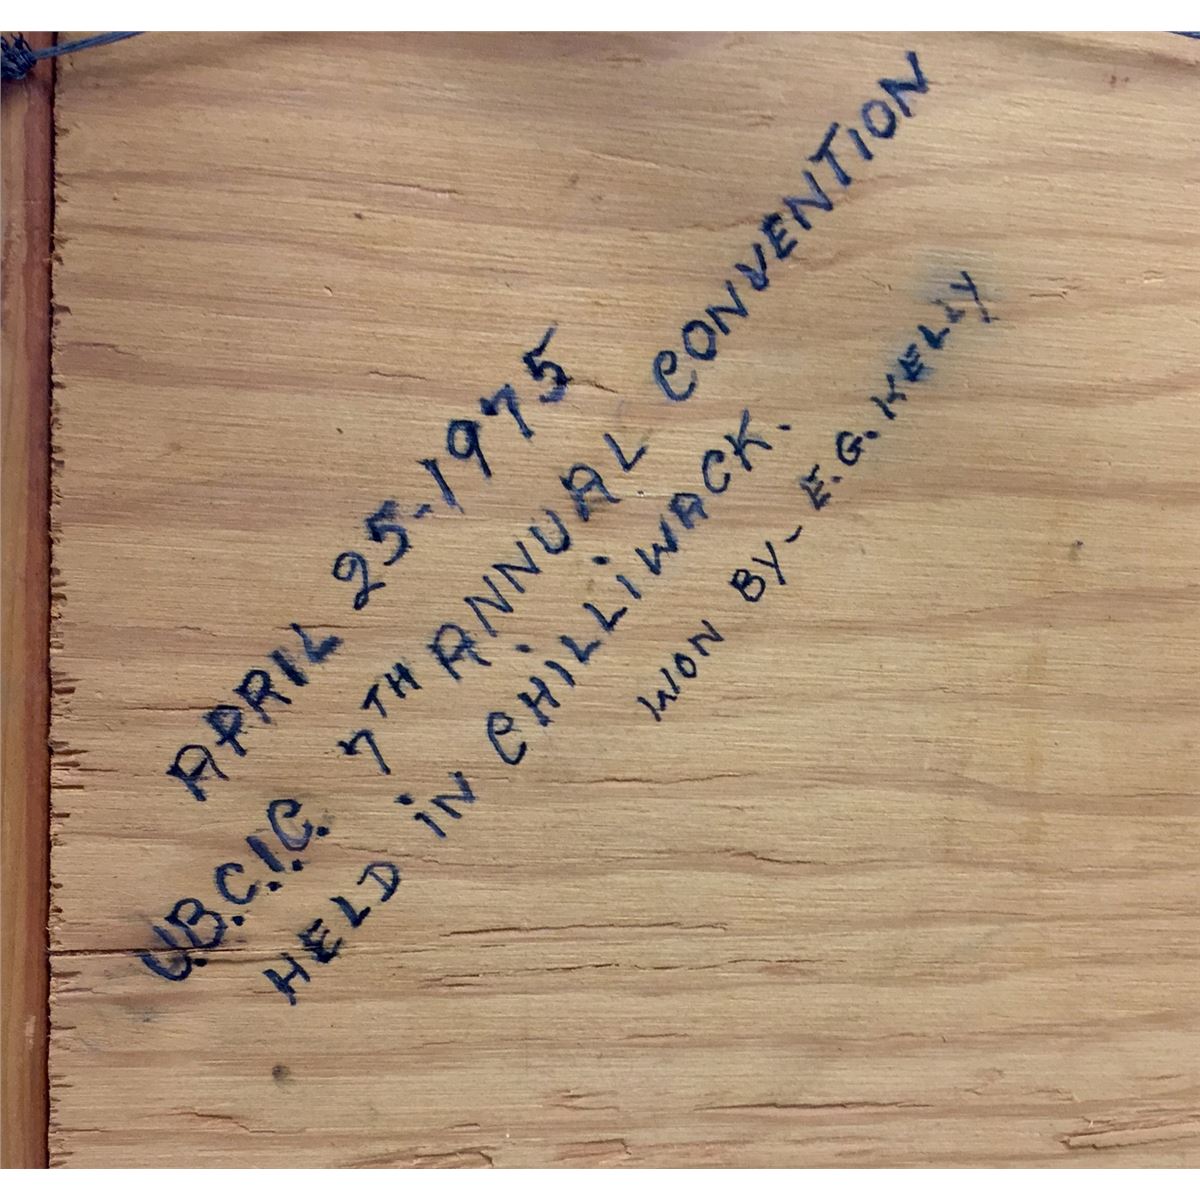 APRIL 25-1975
U.B.C.I.C. 7TH ANNUAL CONVENTION
HELD IN CHILLIWACK.
WON BY- E.G. KELLY